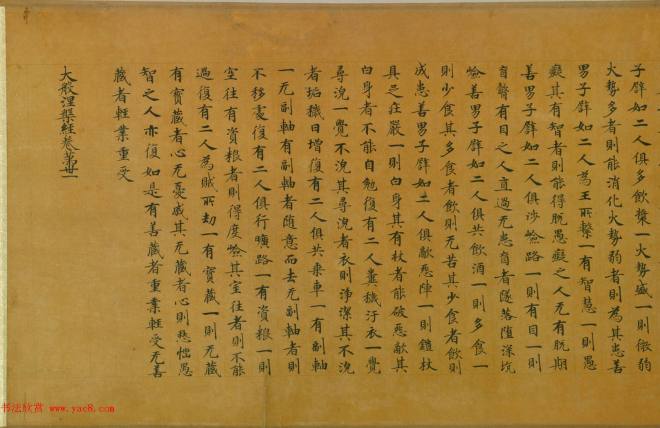 子譬如二人俱多飲漿一火勢盛一則微豹
火勢多者則能消化火勢豹者則為其患善
男子譬如二人為王所繫一有智慧一則愚
癡其有智者則能得脫愚癡之人无有脫期
善男子譬如二人俱涉嶮路一則有目一則
盲瞽有目之人直過无患盲者墜落墮深坑
嶮善男子譬如二人俱共飲酒一則多食一
則少食其多食者飲則无苦其少食者飲則
成患善男子譬如二人俱敵惡陣一則鎧杖
具足莊嚴一則白身其有杖者能破惡敵其
白身者不能自勉復有二人糞穢汙衣一覺
尋浣一覺不浣其尋浣者衣則淨潔其不浣
者垢穢日增復有二人俱共乘車一有副軸
一无副軸有副軸者隨意而去无副軸者則
不移處復有二人俱行曠路一有資粮一則
空往有資粮者則得度嶮其空往者則不能
過復有二人為賊所劫一有寶藏一則无藏
有寶藏者心无憂慼其无藏者心則愁惱愚
智之人亦復如是有善藏者重業輕受无善
藏者輕業重受
大般涅槃經卷第卅一
书法欣赏 www.yac8.com